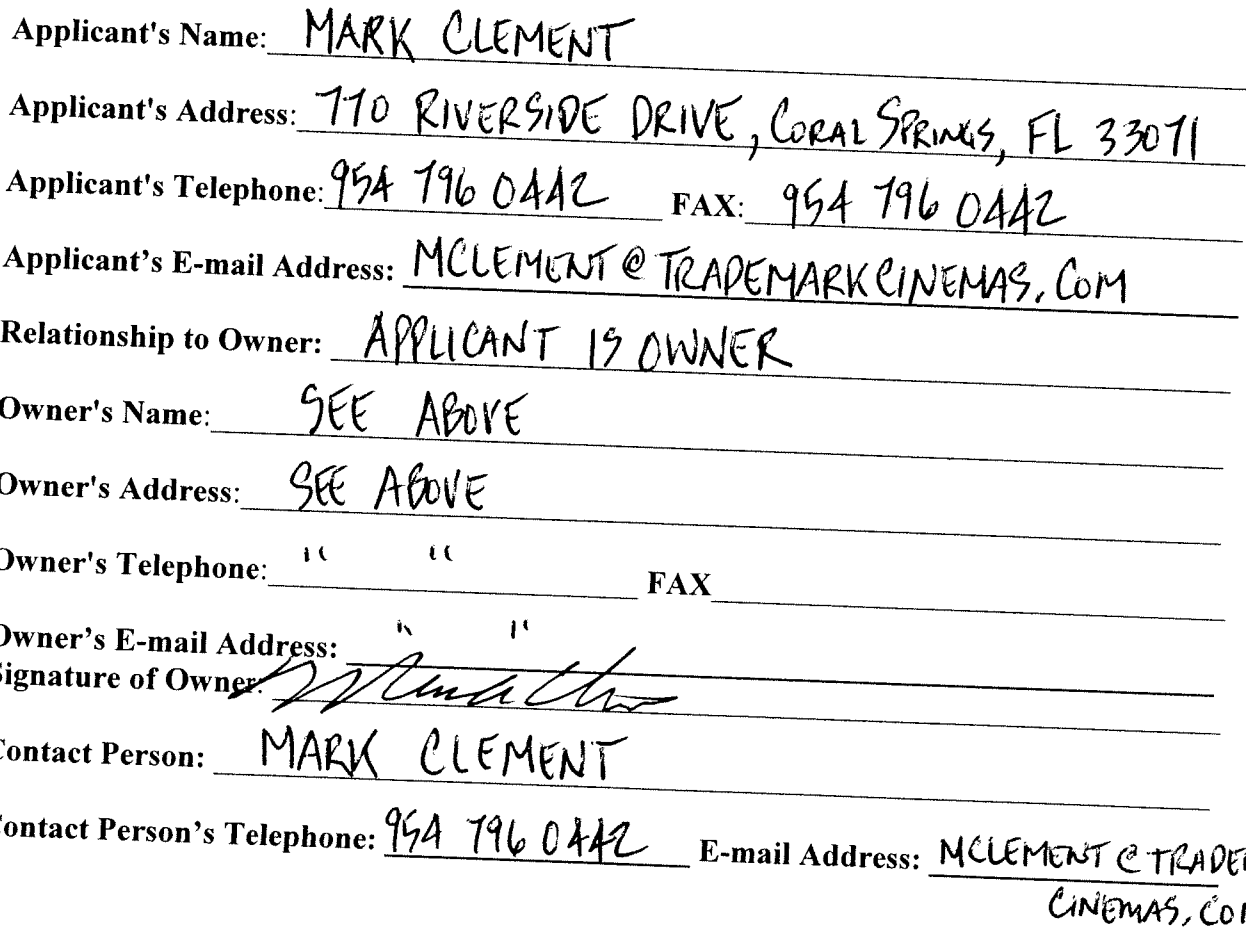 Applicant's Name: MARK CLEMENT
Applicant's Address: 770 RIVERSIDE DRIVE, CORAL SPRINGS, FL 33071
Applicant's Telephone: 954 796 0442 FAX: 954 796 0442
Applicant's E-mail Address: MCLEMENT@TRADEMARKCINEMAS.COM
Relationship to Owner: APPLICANT IS OWNER
Owner's Name: SEE ABOVE
Owner's Address: SEE ABOVE
Owner's Telephone: " " FAX
Owner's E-mail Address: " "
Signature of Owner:
Contact Person: MARK CLEMENT
Contact Person's Telephone: 954 796 0442 E-mail Address: MCLEMENT@TRADE
CINEMAS.CO